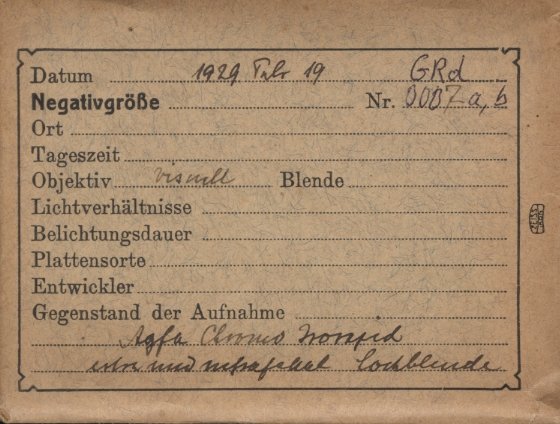 Datum 1929 Febr 19 GRd
Negativgröße Nr. 0007 a, b
Ort
Tageszeit
Objektiv visuell Blende
Lichtverhältnisse
Belichtungsdauer
Plattensorte
Entwickler
Gegenstand der Aufnahme
Agfa Chromo Isorapid
und